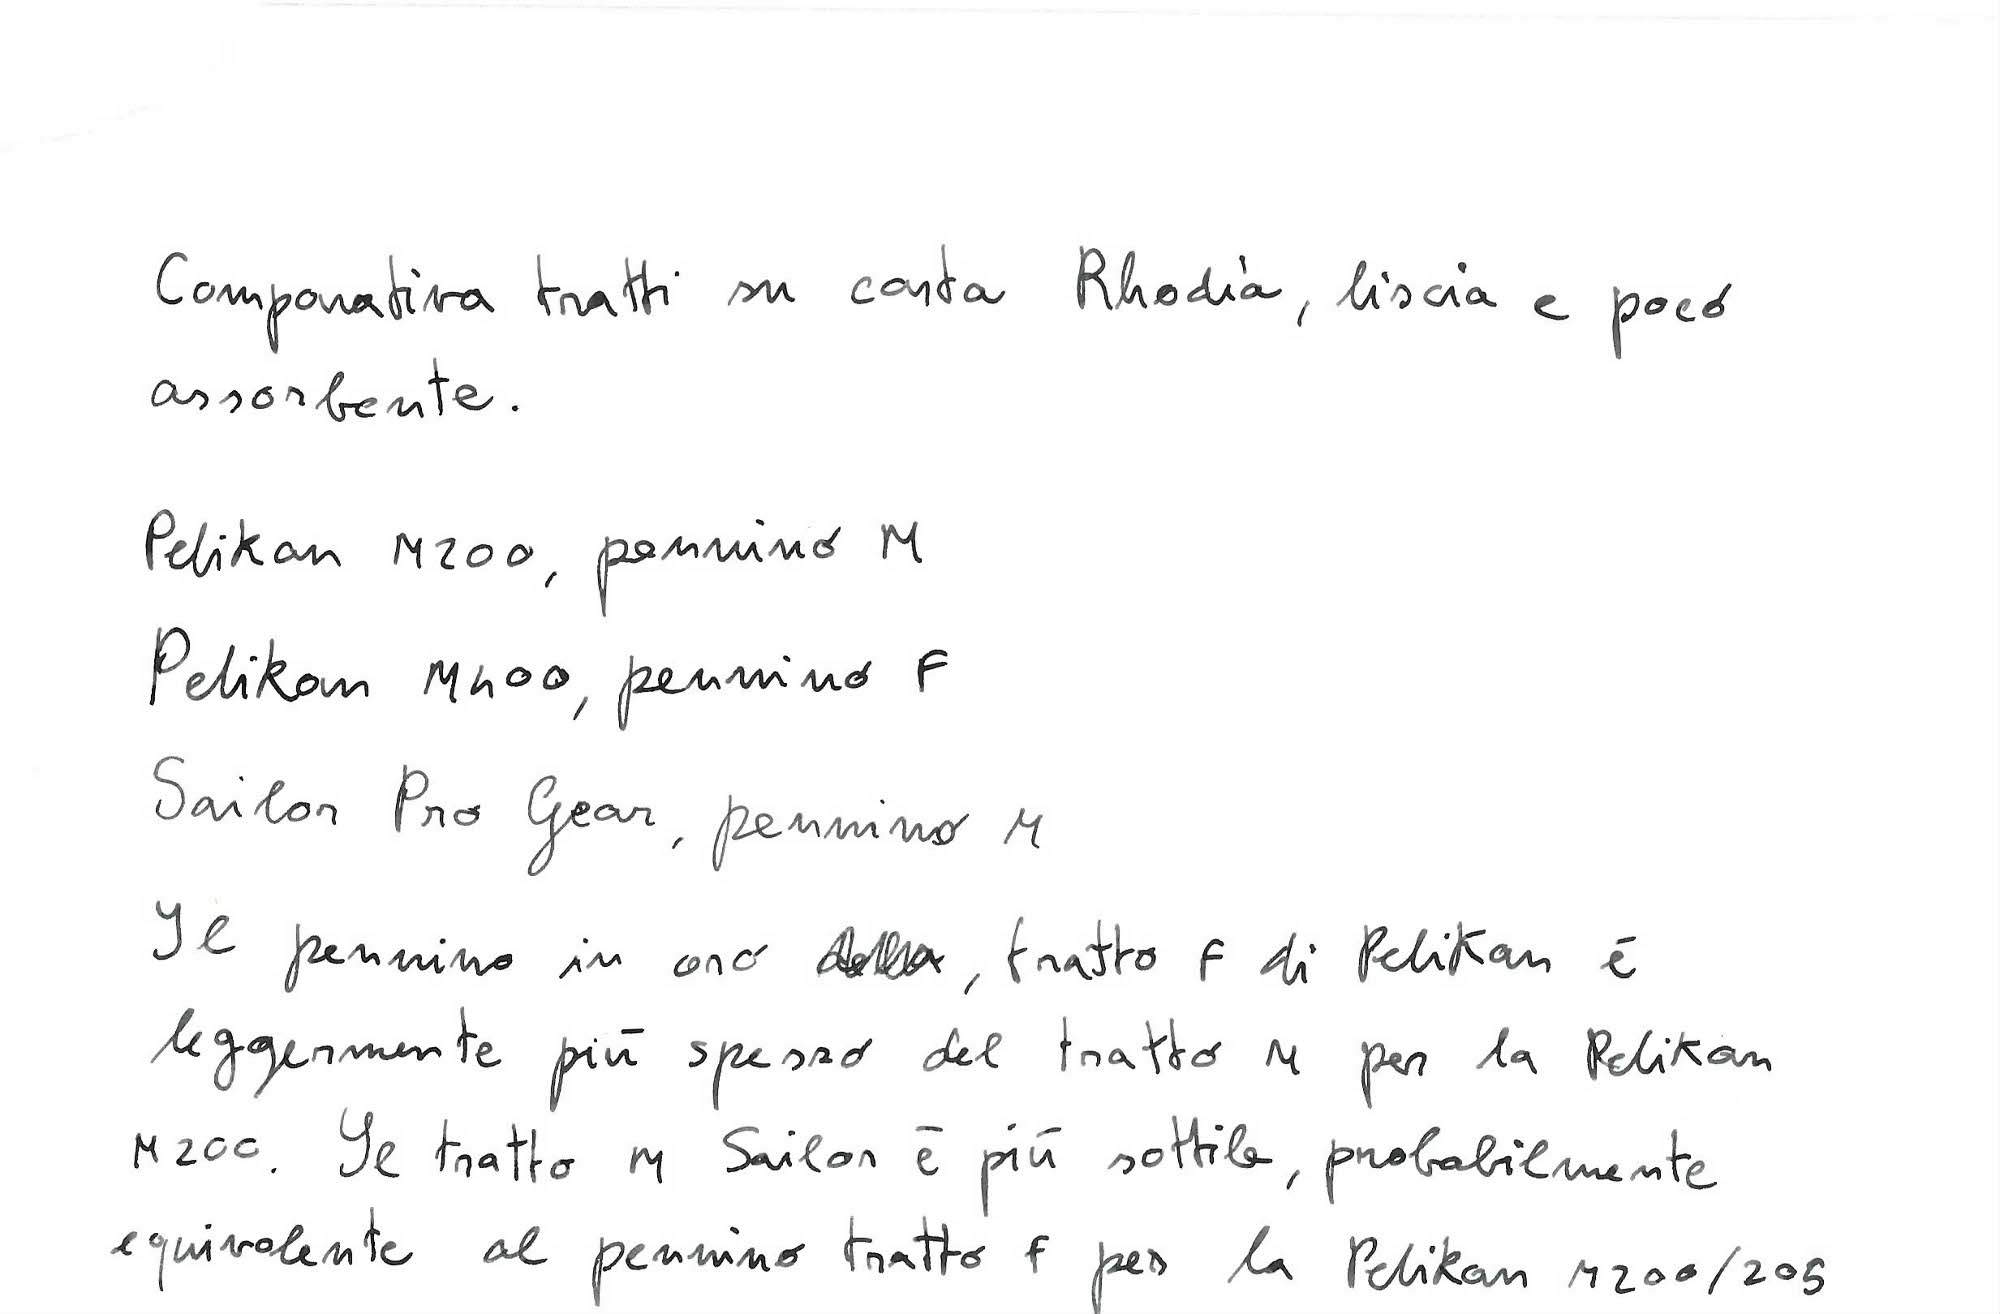 Comparativa tratti su carta Rhodia, liscia e poco
assorbente.
Pelikan M200, pennino M
Pelikan M400, pennino F
Sailor Pro Gear, pennino M
Il pennino in oro, tratto F di Pelikan è
leggermente più spesso del tratto M per la Pelikan
M200. Il tratto M Sailor è più sottile, probabilmente
equivalente al pennino tratto F per la Pelikan M200/205